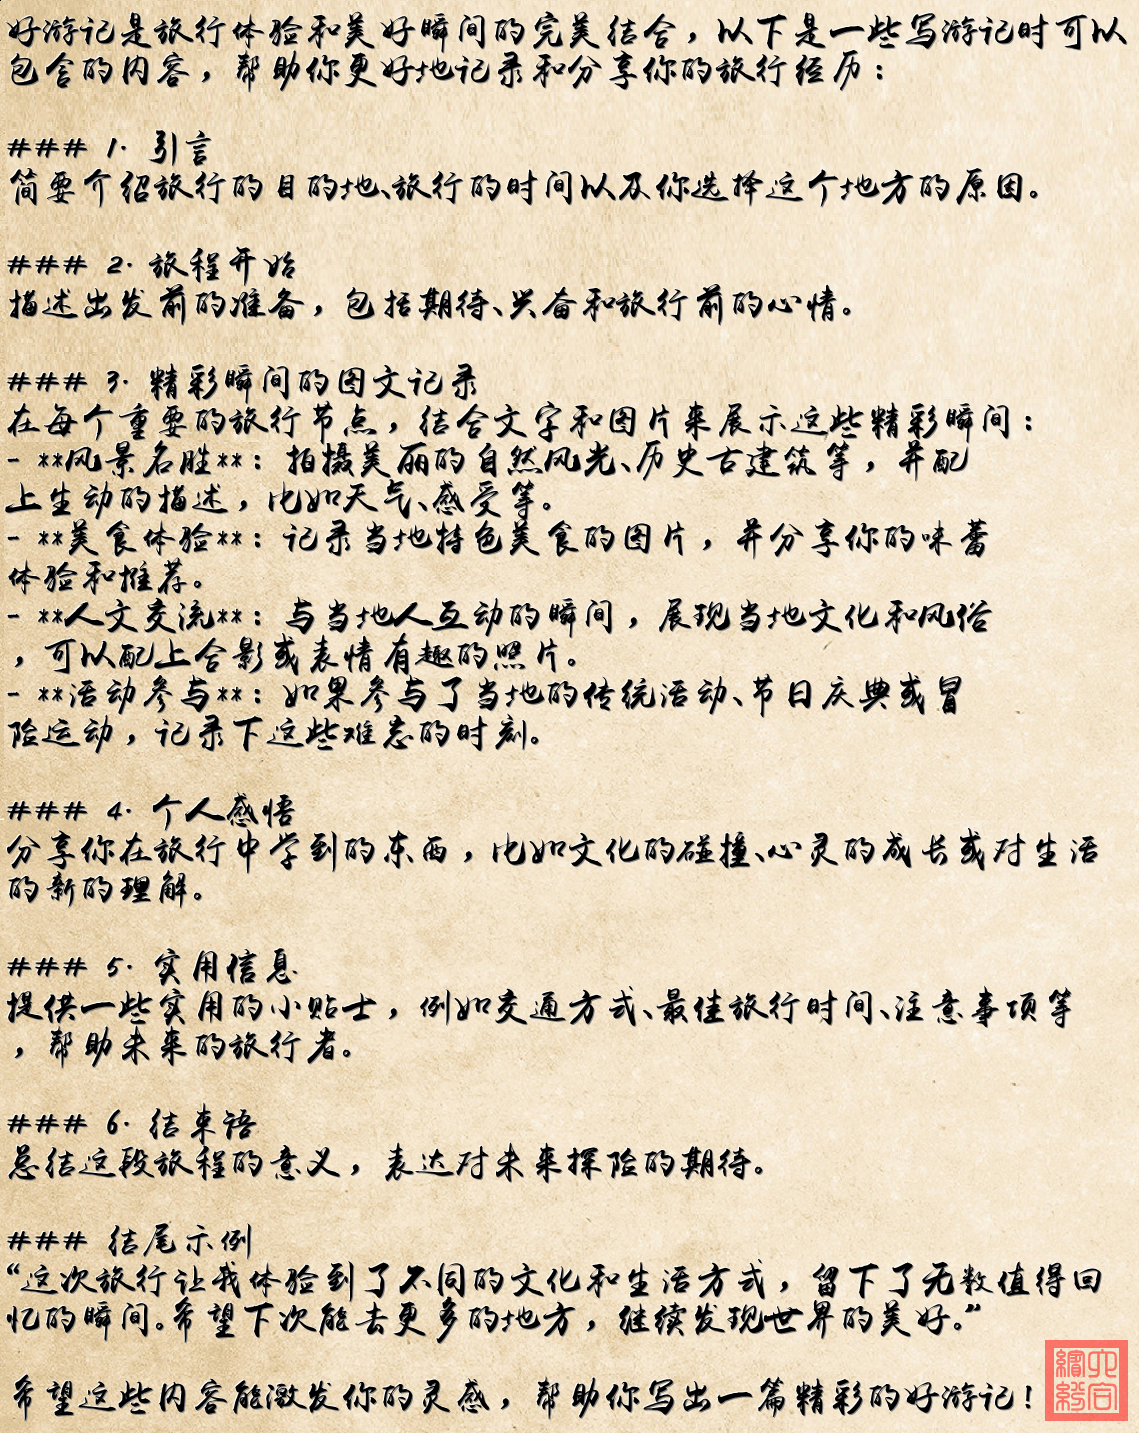 好游记是旅行体验和美好瞬间的完美结合，以下是一些写游记时可以
包含的内容，帮助你更好地记录和分享你的旅行经历：
### 1. 引言
简要介绍旅行的目的地、旅行的时间以及你选择这个地方的原因。
### 2. 旅程开始
描述出发前的准备，包括期待、兴奋和旅行前的心情。
### 3. 精彩瞬间的图文记录
在每个重要的旅行节点，结合文字和图片来展示这些精彩瞬间：
- **风景名胜**：拍摄美丽的自然风光、历史古建筑等，并配
上生动的描述，比如天气、感受等。
- **美食体验**：记录当地特色美食的图片，并分享你的味蕾
体验和推荐。
- **人文交流**：与当地人互动的瞬间，展现当地文化和风俗
，可以配上合影或表情有趣的照片。
- **活动参与**：如果参与了当地的传统活动、节日庆典或冒
险运动，记录下这些难忘的时刻。
### 4. 个人感悟
分享你在旅行中学到的东西，比如文化的碰撞、心灵的成长或对生活
的新的理解。
### 5. 实用信息
提供一些实用的小贴士，例如交通方式、最佳旅行时间、注意事项等
，帮助未来的旅行者。
### 6. 结束语
总结这段旅程的意义，表达对未来探险的期待。
### 结尾示例
“这次旅行让我体验到了不同的文化和生活方式，留下了无数值得回
忆的瞬间。希望下次能去更多的地方，继续发现世界的美好。”
希望这些内容能激发你的灵感，帮助你写出一篇精彩的好游记！